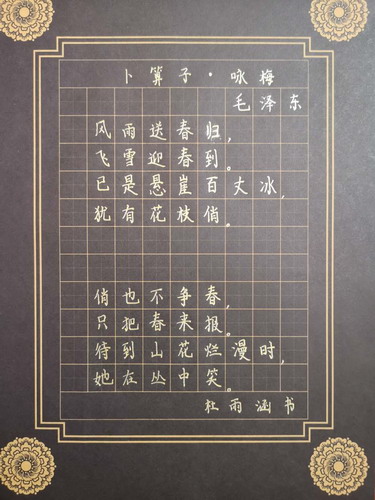 卜算子·咏梅
毛泽东
风雨送春归，
飞雪迎春到。
已是悬崖百丈冰，
犹有花枝俏。
俏也不争春，
只把春来报。
待到山花烂漫时，
她在丛中笑。
杜雨涵书